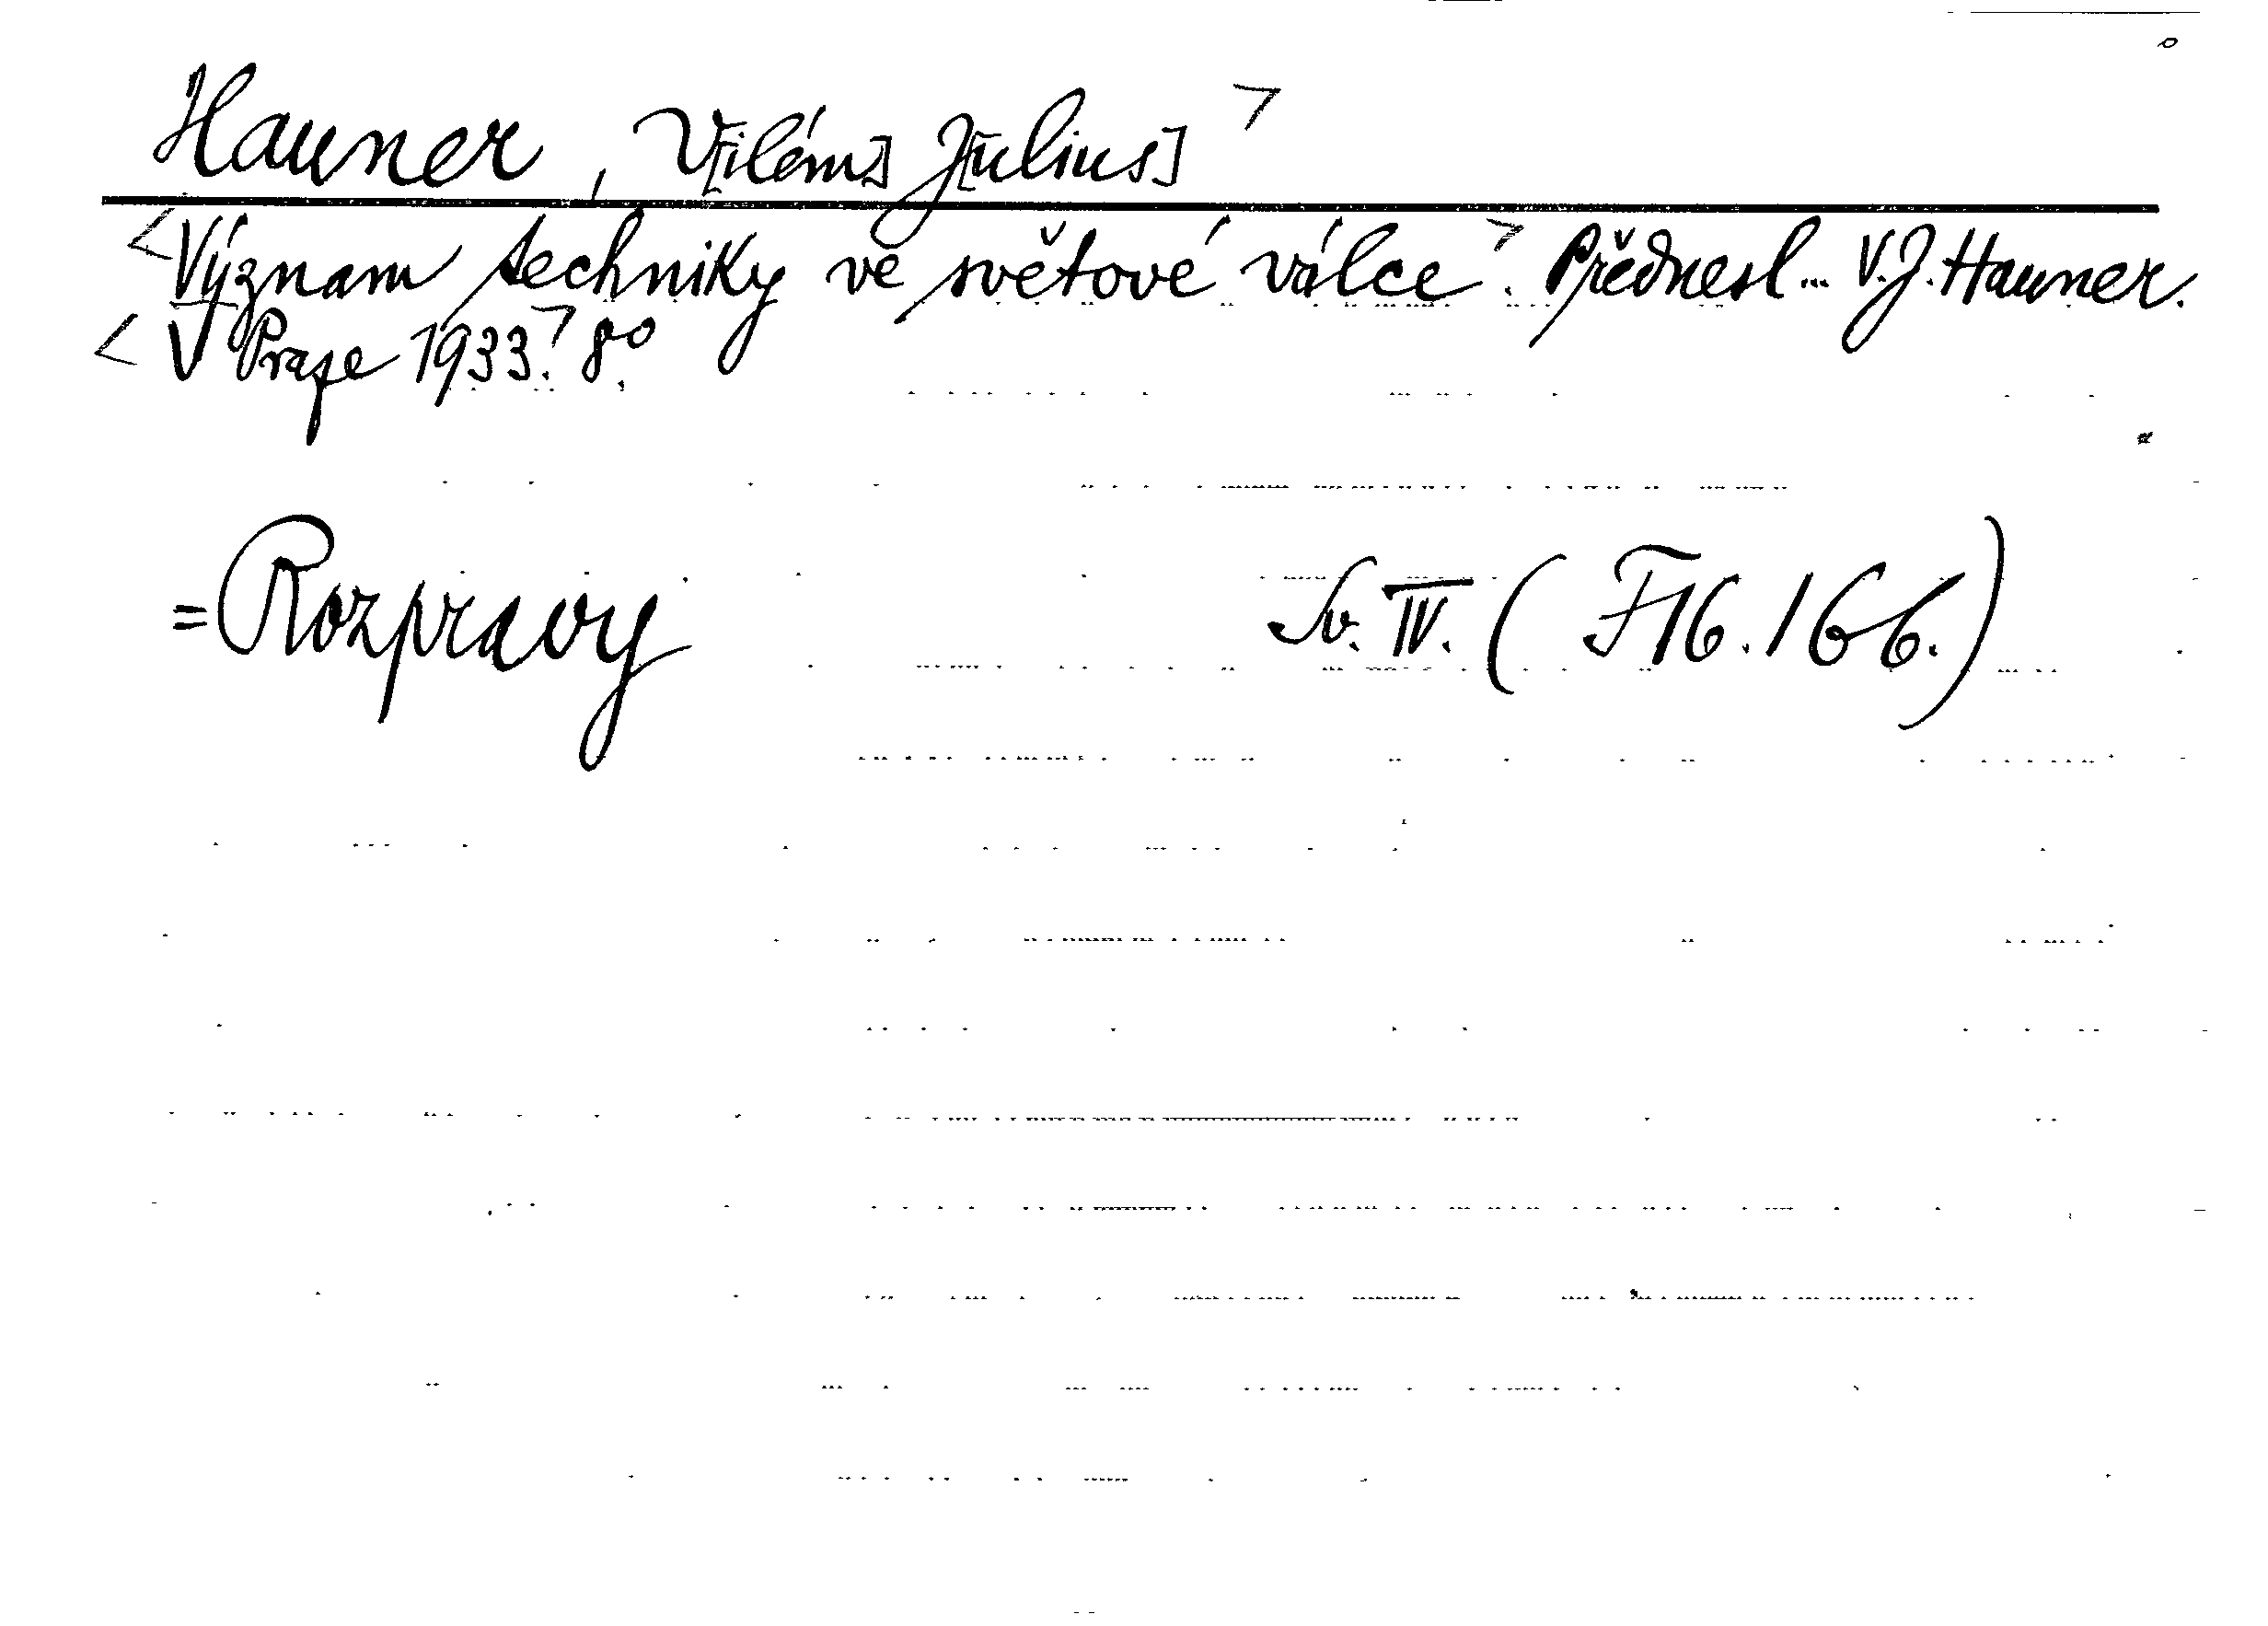 Hauner, V[ilém] J[ulius] >
<Význam techniky ve světové válce>. Přednesl... V. J. Hauner.
<V Praze 1933.> 8°.
= Rozpravy Sv. IV. (F 16.166.)